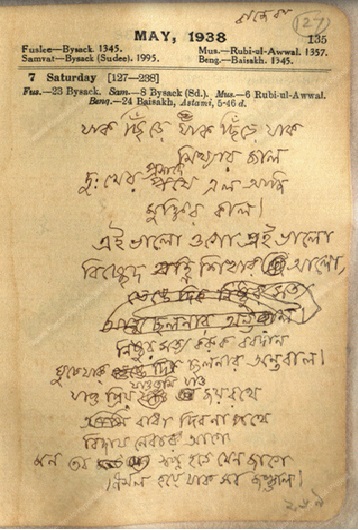 (27)
MAY, 1938 135
Fuslee—Bysack. 1345. Mus.—Rubi-ul-Awwal. 1357.
Samvat—Bysack (Sudee). 1995. Beng.—Baisakh. 1345.
7 Saturday [127—238]
Fus.—23 Bysack. Sam.—8 Bysack (Sd.). Mus.—6 Rubi-ul-Awwal.
Beng.—24 Baisakh, Astami, 5-46 d.
যাক ছিঁড়ে যাক ছিঁড়ে যাক
মিথ্যার জাল
দুঃখের প্রসাদে এল আজি
মুক্তির কাল।
এই ভালো ওগো এই ভালো
বিচ্ছেদ বহ্নি শিখার আলো,
নিষ্ঠুর সত্য করুক বরদান
ঘুচে যাক ছলনার অন্তরাল।
যাও প্রিয় যাও জয়রথে
বাধা দিব না পথে
বিদায় নেবার আগে
মন তব স্বপ্ন হতে যেন জাগে
নির্মল হয়ে যাক সব জঞ্জাল।